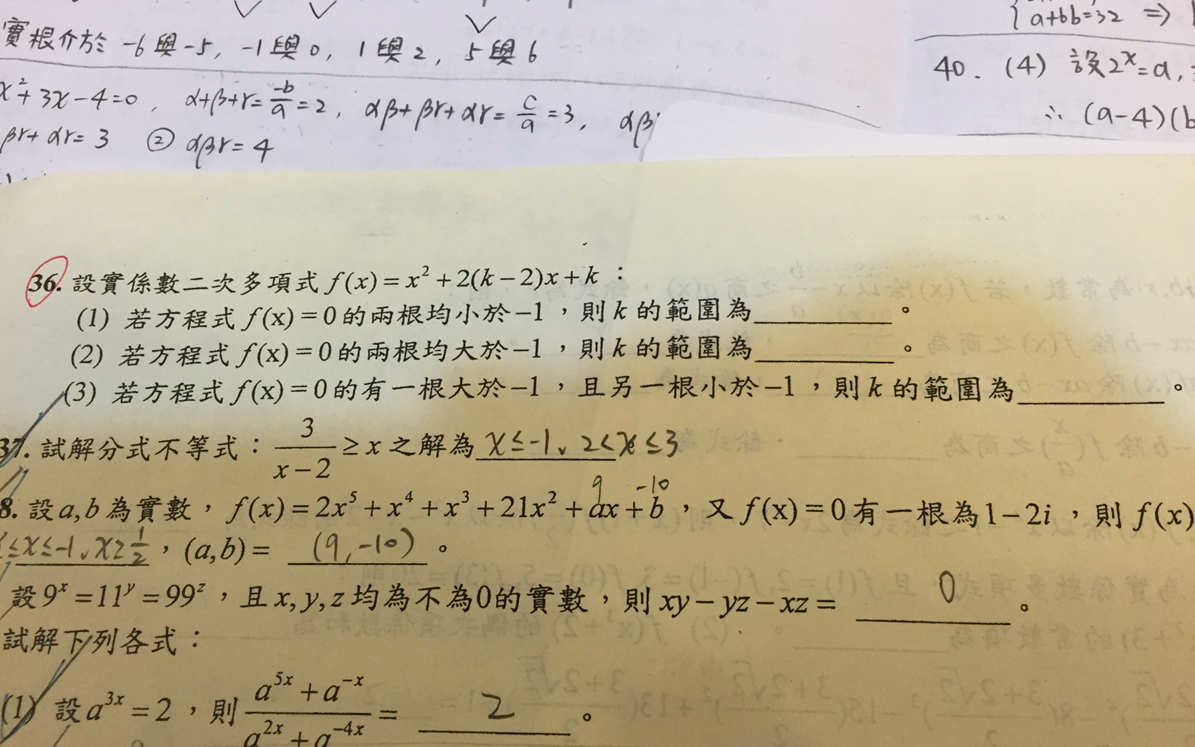 實根介於 -6與-5, -1與0, 1與2, 5與6
x²+3x-4=0, α+β+r=-b/a=2, αβ+βr+αr=c/a=3, αβ
βr+αr=3 ② αβr=4
a+bb=32 ⇒
40. (4) 設2ˣ=a,
∴ (a-4)(b
36. 設實係數二次多項式 f(x)=x²+2(k-2)x+k:
(1) 若方程式 f(x)=0的兩根均小於-1,則k的範圍為__________。
(2) 若方程式 f(x)=0的兩根均大於-1,則k的範圍為__________。
(3) 若方程式 f(x)=0的有一根大於-1,且另一根小於-1,則k的範圍為__________。
37. 試解分式不等式:3/(x-2)≥x之解為 x≤-1、2<x≤3
9 -10
8. 設a,b為實數,f(x)=2x⁵+x⁴+x³+21x²+ax+b,又f(x)=0有一根為1-2i,則f(x)
≤x≤-1、x≥1/2,(a,b)= (9,-10)。
設9ˣ=11ʸ=99ᶻ,且x,y,z均為不為0的實數,則xy-yz-xz= 0。
試解下列各式:
(1) 設a³ˣ=2,則(a⁵ˣ+a⁻ˣ)/(a²ˣ+a⁻⁴ˣ)= 2。